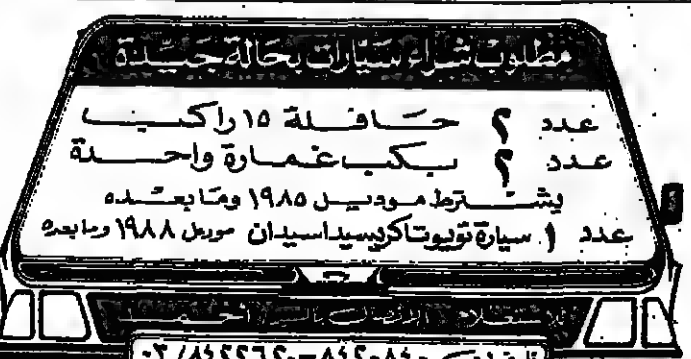 مطلوب شراء سيارات بحالة جيدة
عدد ٢ حافلة ١٥ راكب
عدد ٢ بكب غمارة واحدة
يشترط موديل ١٩٨٥ وما بعده
عدد ١ سيارة تويوتا كريسيدا سيدان موديل ١٩٨٨ وما بعده
للاستعلام الاتصال بالسيد أحمد